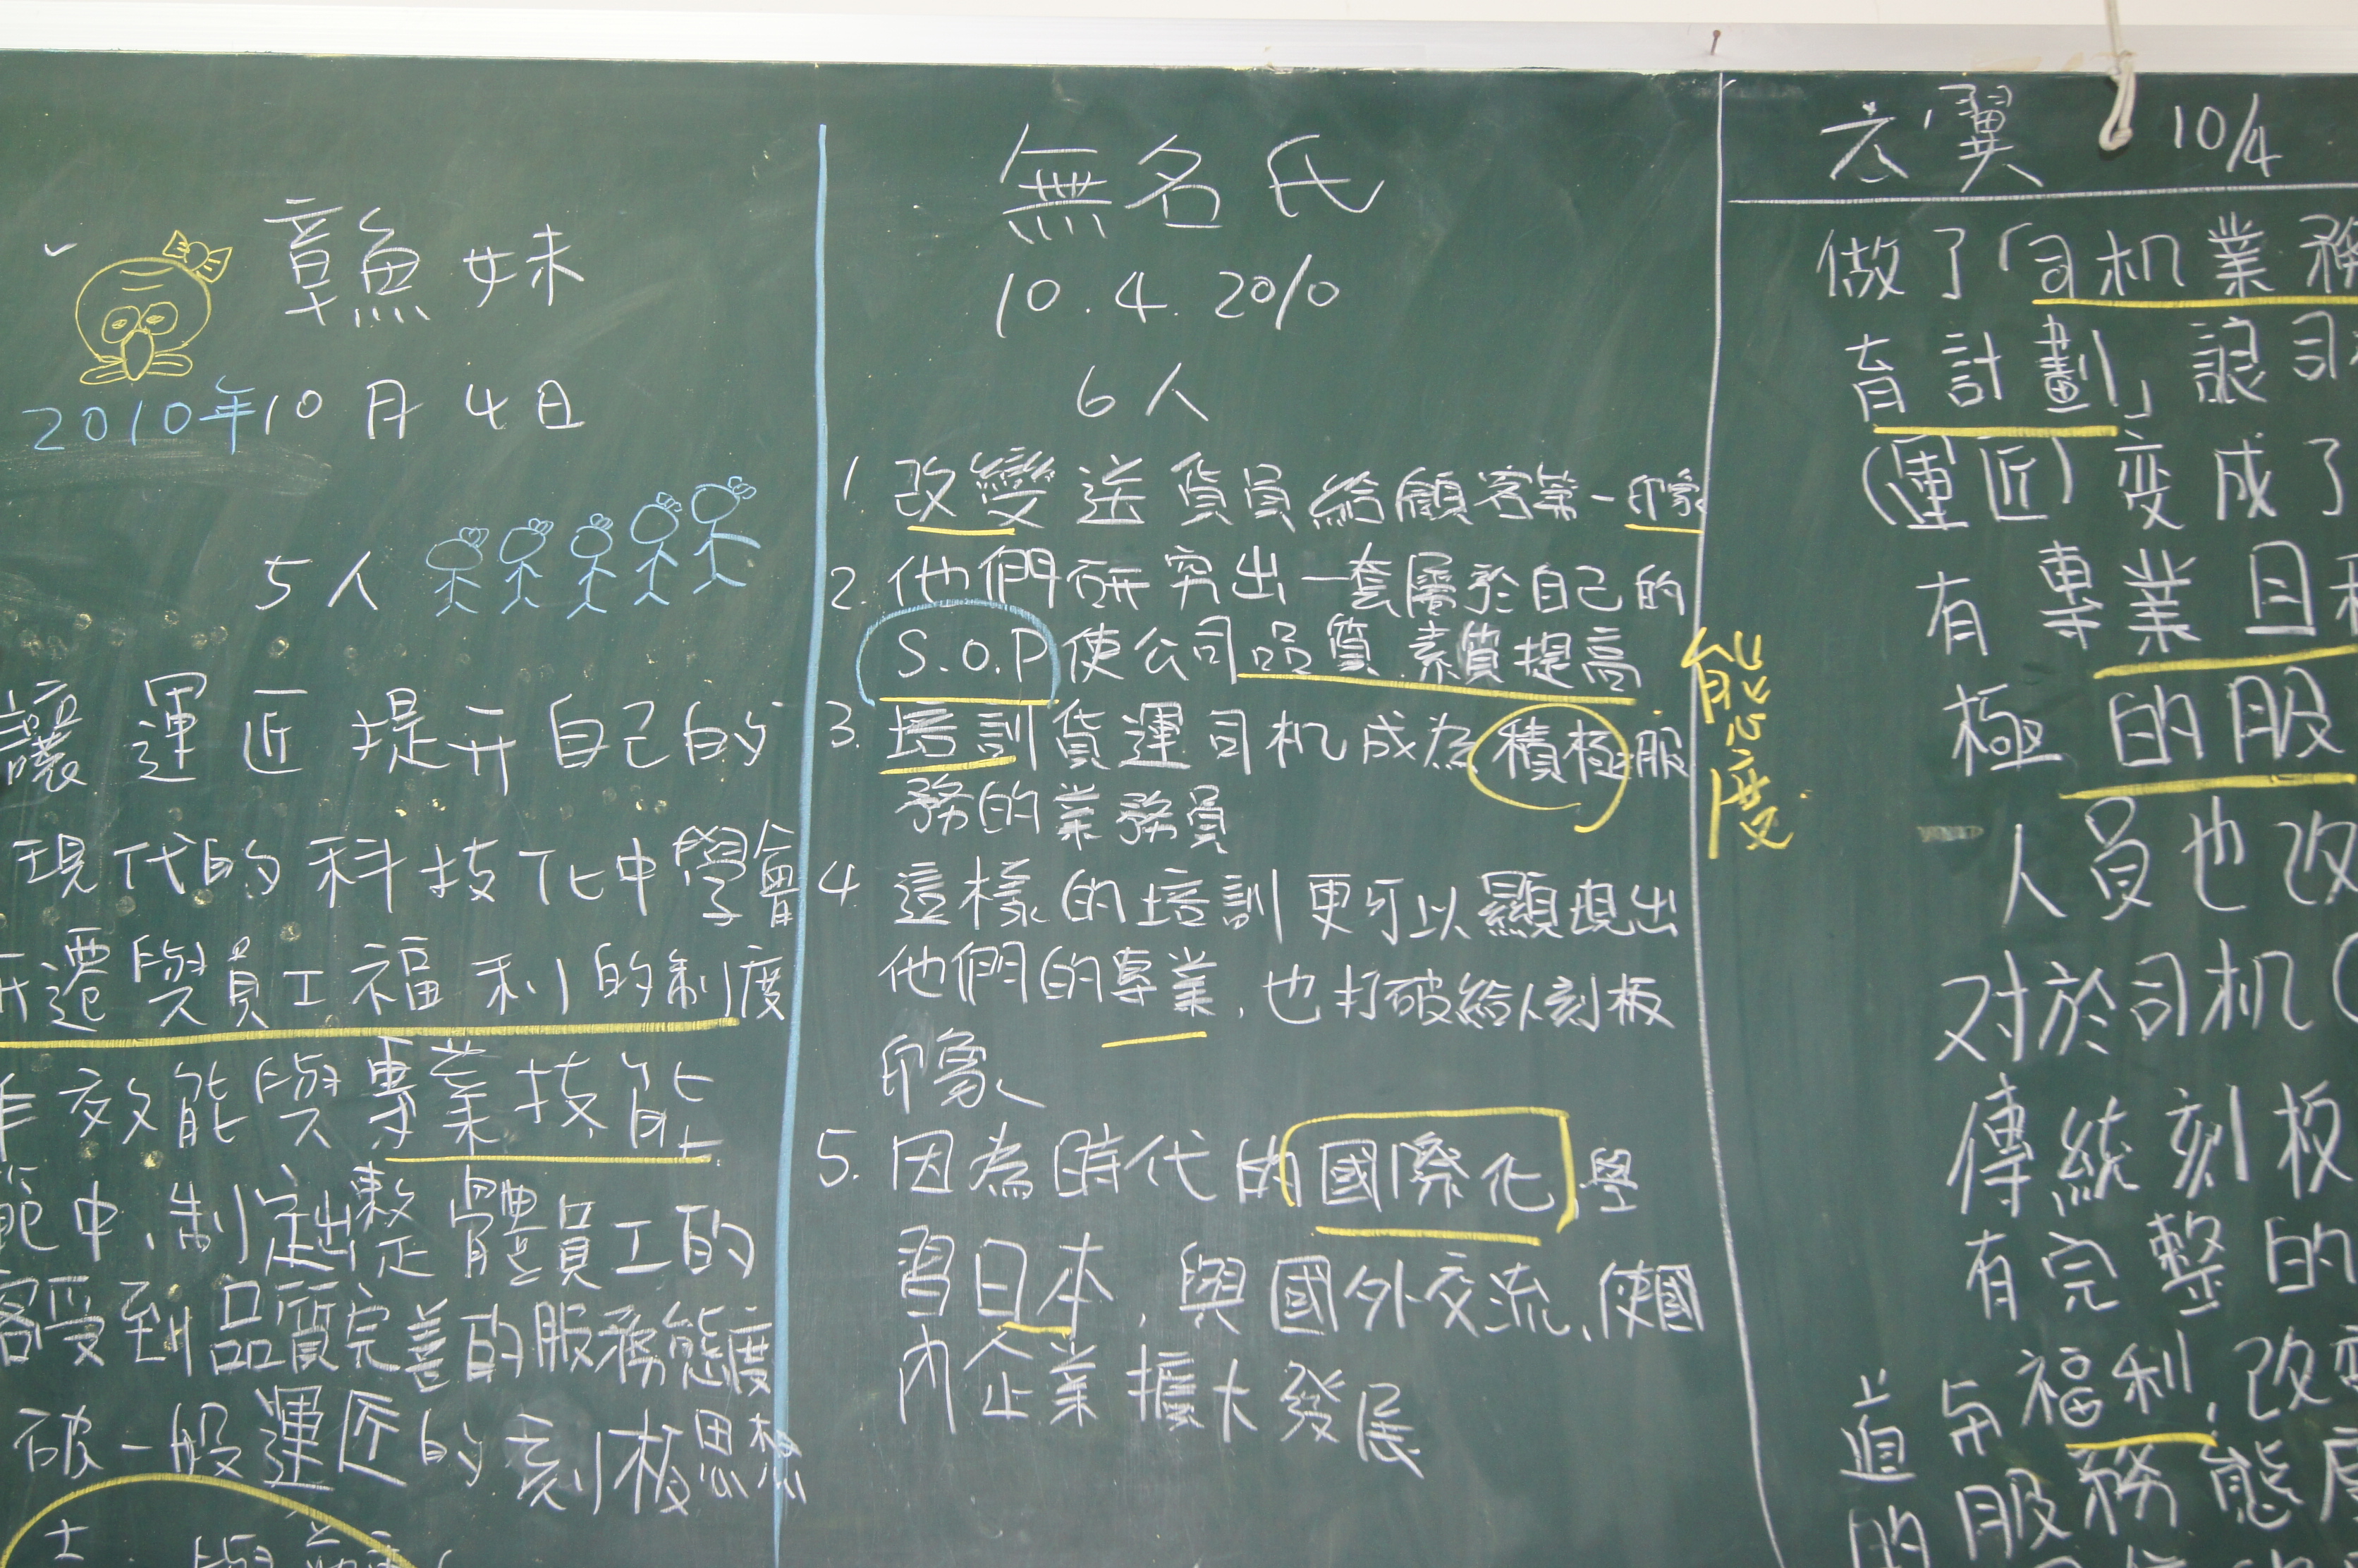 章魚妹
2010年10月4日
5人
讓運匠提升自己的
現代的科技化中學會
還與員工福利的制度
效能與專業技能
範中,制定起整體員工的
客受到品質完善的服務態度
破一般運匠的刻板思想
與
無名氏
10.4.2010
6人
1. 改變送貨員給顧客第一印象
2. 他們研究出一套屬於自己的
S.O.P使公司品質.素質提高
3. 培訓貨運司机成為積極服
務的業務員
4 這樣的培訓更可以顯現出
他們的專業,也打破給人刻板
印象
5. 因為時代的國際化,學
習日本,與國外交流,使國
內企業擴大發展
態度
10/4
做了「司机業務
育計劃」讓司
(運匠)变成了
有專業且積
極的服
人員也改
对於司机(
傳統刻板
有完整的
福利,改變
的服務態度